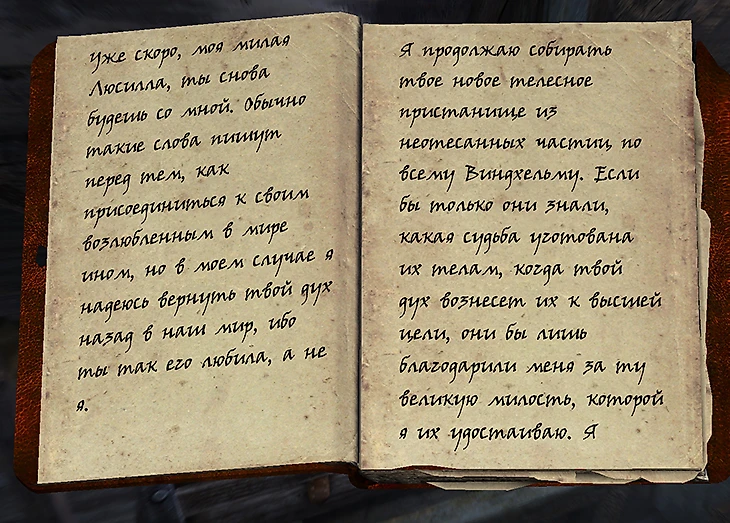 Уже скоро, моя милая
Люсилла, ты снова
будешь со мной. Обычно
такие слова пишут
перед тем, как
присоединиться к своим
возлюбленным в мире
ином, но в моем случае я
надеюсь вернуть твой дух
назад в наш мир, ибо
ты так его любила, а не
я.
Я продолжаю собирать
твое новое телесное
пристанище из
неотесанных частиц по
всему Виндхельму. Если
бы только они знали,
какая судьба уготована
их телам, когда твой
дух вознесет их к высшей
цели, они бы лишь
благодарили меня за ту
великую милость, которой
я их удостаиваю. Я